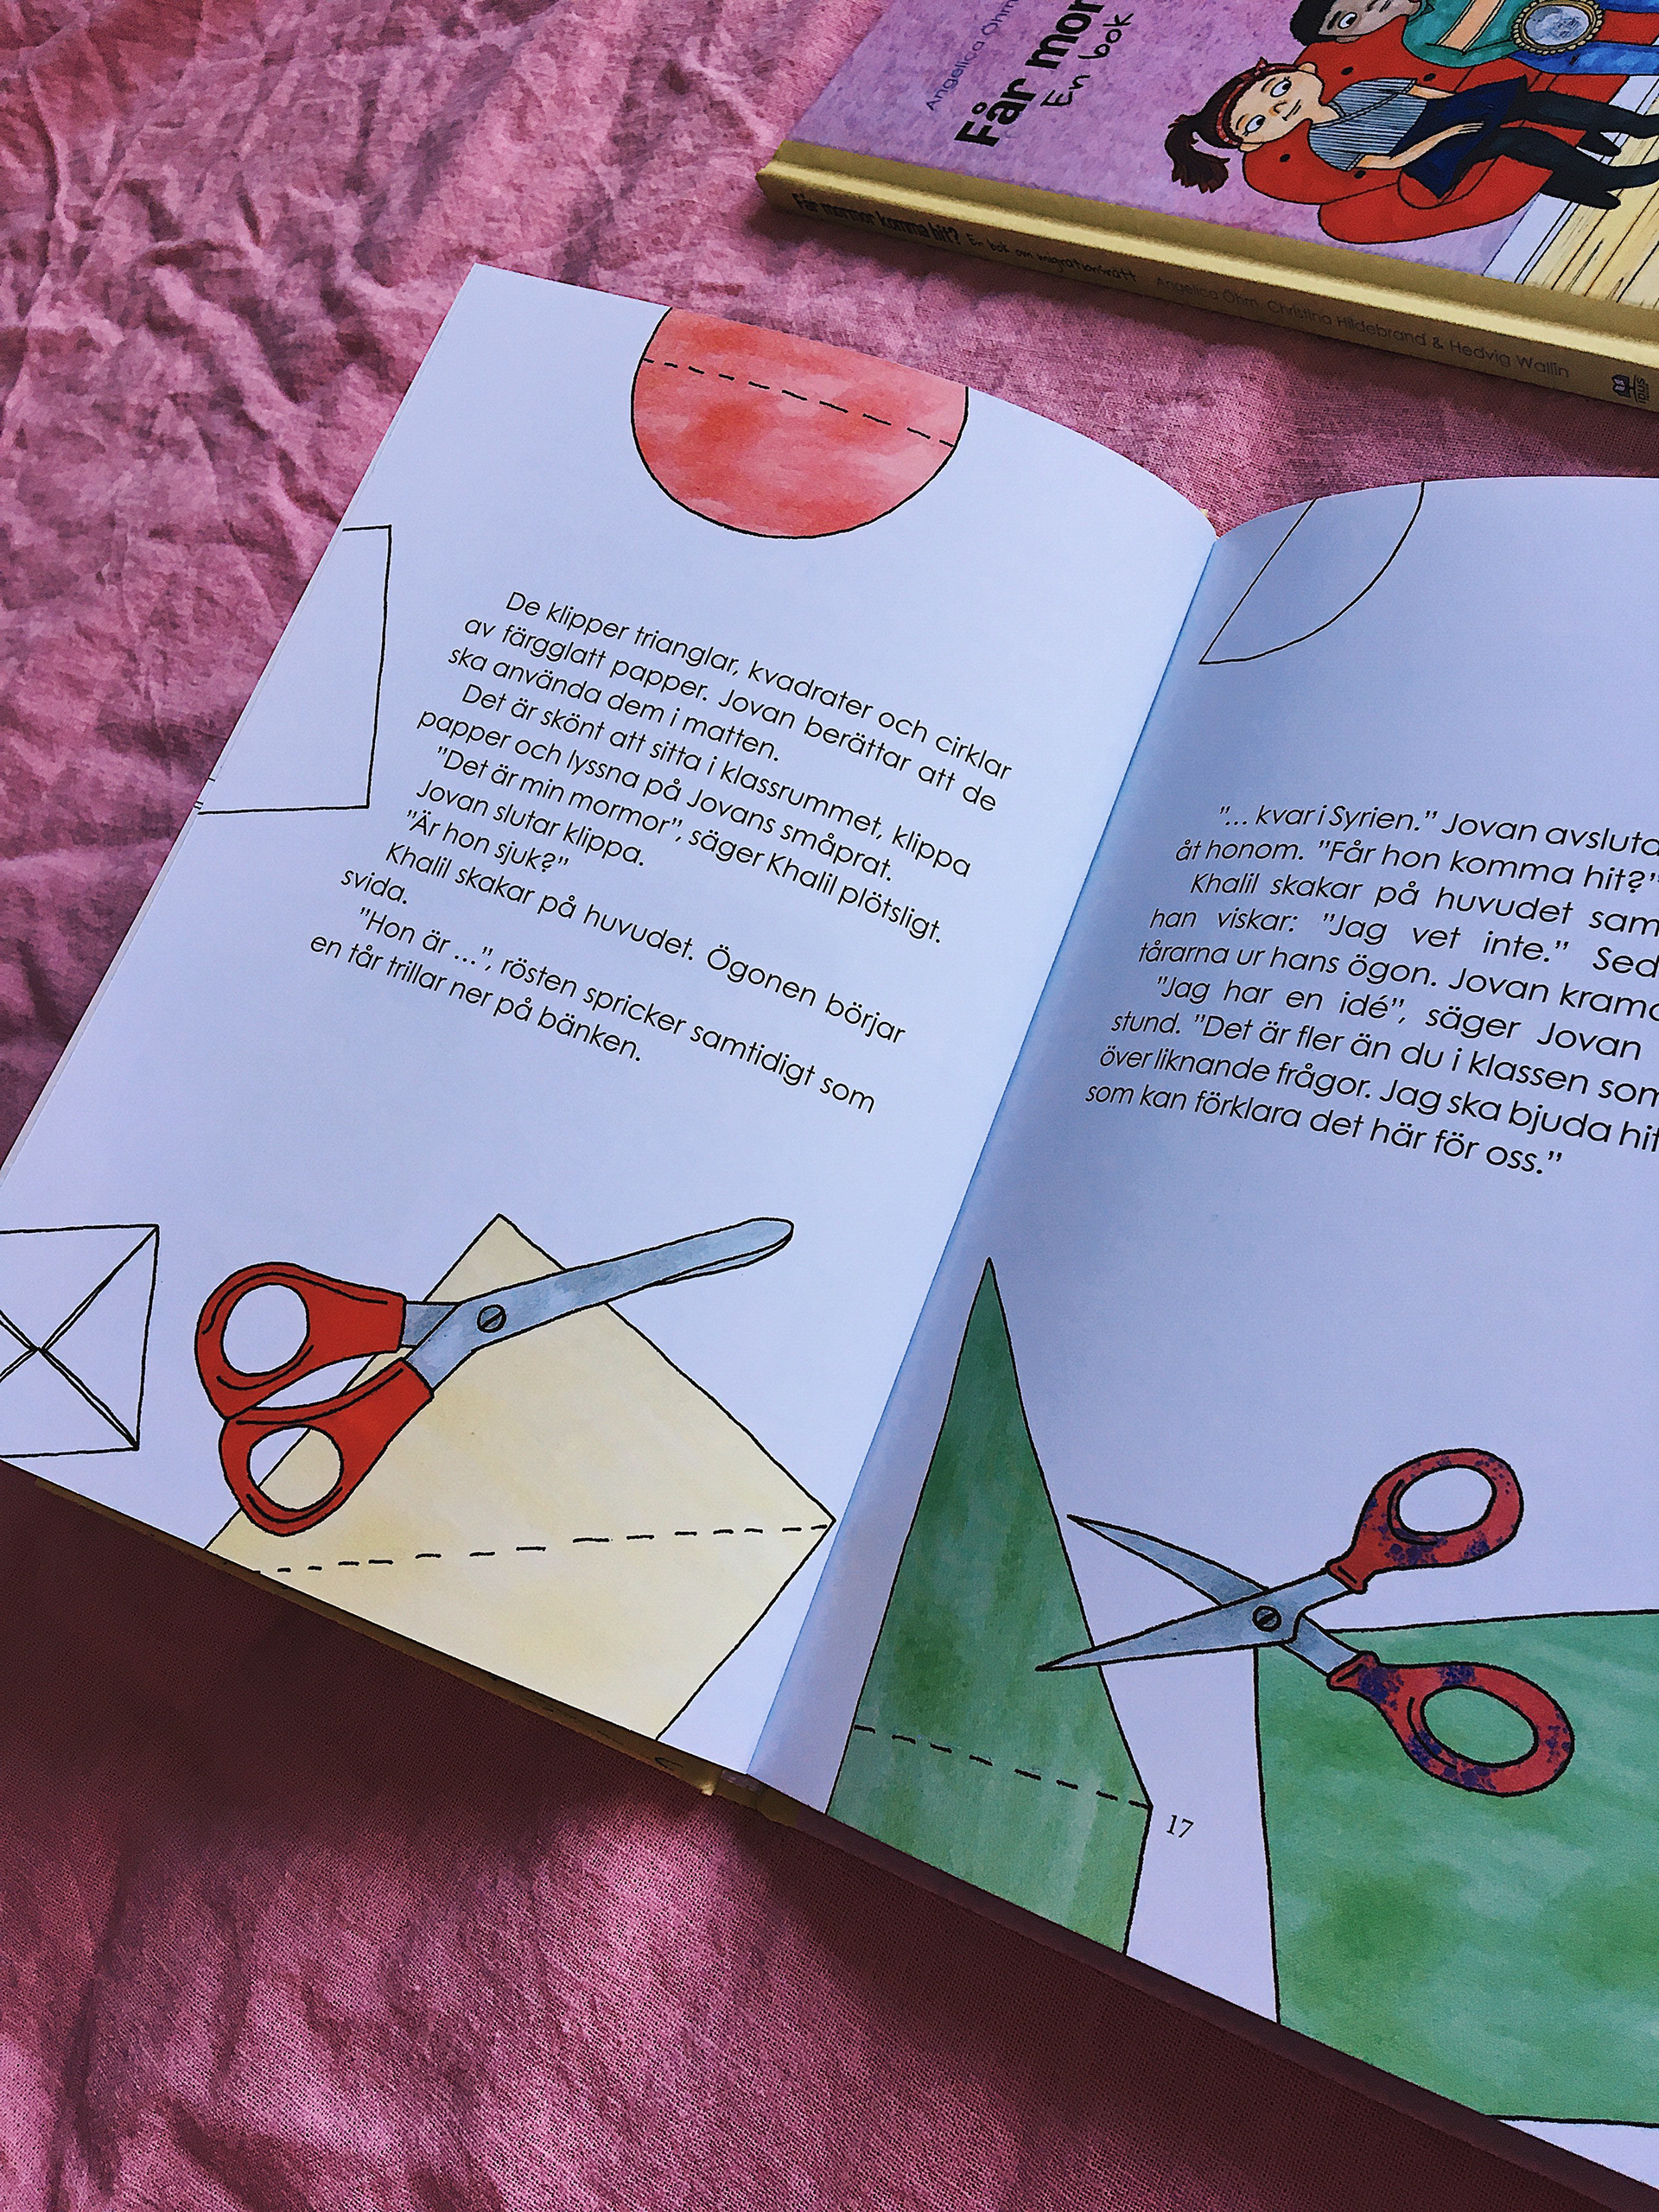 Angelica Öhm
Får mor
En bok
Får mormor komma hit? En bok om migrationsrätt Angelica Öhm, Christina Hildebrand & Hedvig Wallin
idus
De klipper trianglar, kvadrater och cirklar
av färgglatt papper. Jovan berättar att de
ska använda dem i matten.
Det är skönt att sitta i klassrummet, klippa
papper och lyssna på Jovans småprat.
”Det är min mormor”, säger Khalil plötsligt.
Jovan slutar klippa.
”Är hon sjuk?”
Khalil skakar på huvudet. Ögonen börjar
svida.
”Hon är …”, rösten spricker samtidigt som
en tår trillar ner på bänken.
”… kvar i Syrien.” Jovan avsluta
åt honom. ”Får hon komma hit?”
Khalil skakar på huvudet sam
han viskar: ”Jag vet inte.” Sed
tårarna ur hans ögon. Jovan krama
”Jag har en idé”, säger Jovan
stund. ”Det är fler än du i klassen som
över liknande frågor. Jag ska bjuda hit
som kan förklara det här för oss.”
17